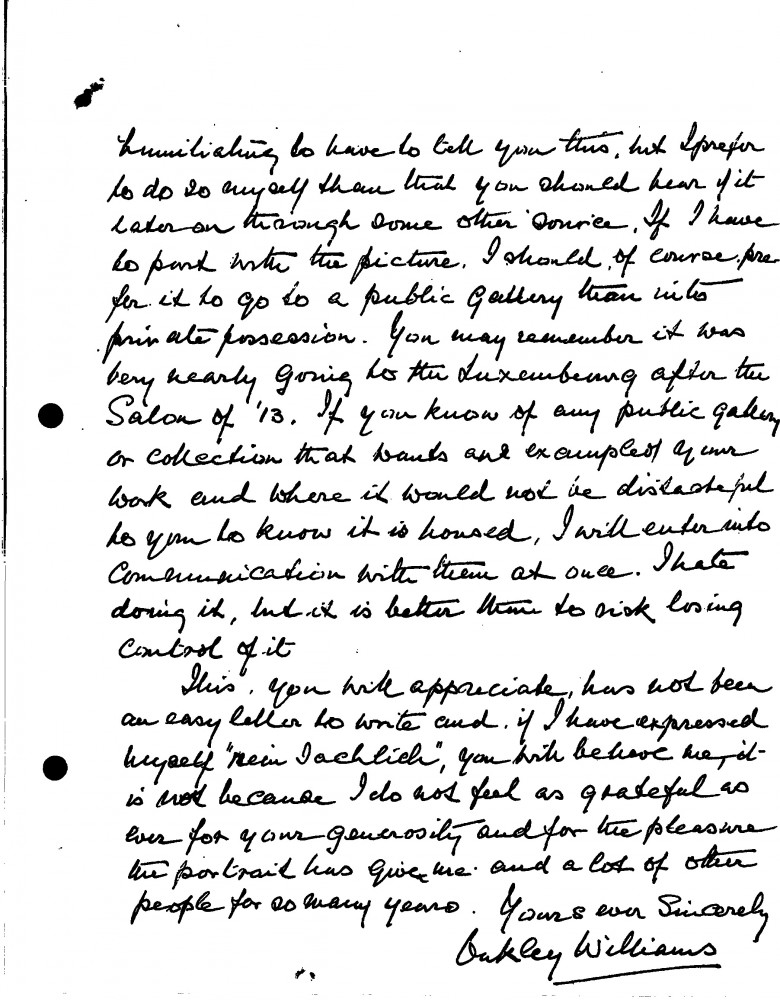 humiliating to have to tell you this, but I prefer
to do so myself than that you should hear of it
later on through some other source. If I have
to part with the picture, I should, of course, pre-
fer it to go to a public Gallery than into
private possession. You may remember it was
very nearly going to the Luxembourg after the
Salon of '13. If you know of any public gallery
or collection that wants an example of your
work and where it would not be distasteful
to you to know it is housed, I will enter into
communication with them at once. I hate
doing it, but it is better than to risk losing
control of it
This, you will appreciate, has not been
an easy letter to write and, if I have expressed
myself "rein sachlich", you will believe me, it
is not because I do not feel as grateful as
ever for your generosity and for the pleasure
the portrait has given me and a lot of other
people for so many years. Yours ever Sincerely
Oakley Williams